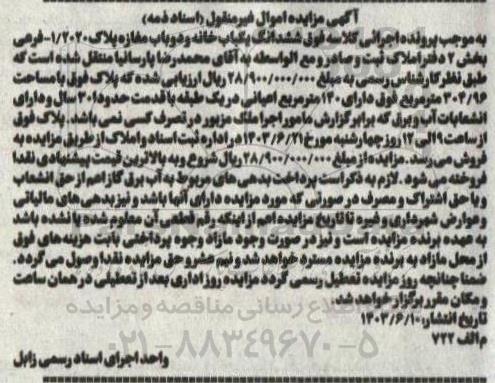 آگهی مزایده اموال غیرمنقول (اسناد ذمه)
به موجب پرونده اجرائی کلاسه فوق ششدانگ یکباب خانه و دو باب مغازه پلاک ۱/۲۰۲۰-فرعی
بخش ۲ دفتر املاک ثبت و صادر و مع الواسطه به آقای محمدرضا پارسانیا منتقل شده است که
طبق نظر کارشناس رسمی به مبلغ ۲۸/۹۰۰/۰۰۰/۰۰۰ ریال ارزیابی شده که پلاک فوق با مساحت
۳۰۴/۹۶ مترمربع فوق دارای ۱۳۰ مترمربع اعیانی در یک طبقه با قدمت حدود ۳۰ سال و دارای
انشعابات آب و برق که برابر گزارش مامور اجرا ملک مزبور در تصرف کسی نمی باشد. پلاک فوق
از ساعت ۹ الی ۱۲ روز چهارشنبه مورخ ۱۴۰۳/۶/۲۱ در اداره ثبت اسناد و املاک از طریق مزایده به
فروش می رسد. مزایده از مبلغ ۲۸/۹۰۰/۰۰۰/۰۰۰ ریال شروع و به بالاترین قیمت پیشنهادی نقدا
فروخته می شود. لازم به ذکر است پرداخت بدهی های مربوط به آب برق گاز اعم از حق انشعاب
و یا حق اشتراک و مصرف در صورتی که مورد مزایده دارای آنها باشد و نیز بدهی های مالیاتی
و عوارض شهرداری و غیره تا تاریخ مزایده اعم از اینکه رقم قطعی آن معلوم شده یا نشده باشد
به عهده برنده مزایده است و نیز در صورت وجود مازاد وجوه پرداختی بابت هزینه های فوق
از محل مازاد به برنده مزایده مسترد خواهد شد و نیم عشر و حق مزایده نقدا وصول می گردد.
ضمنا چنانچه روز مزایده تعطیل رسمی گردد مزایده روز اداری بعد از تعطیلی در همان ساعت
و مکان مقرر برگزار خواهد شد.
تاریخ انتشار: ۱۴۰۳/۶/۱۰
م الف ۷۲۲
واحد اجرای اسناد رسمی زابل
اطلاع رسانی مناقصه و مزایده
۰۲۱-۸۸۳۴۹۶۷۰-۵